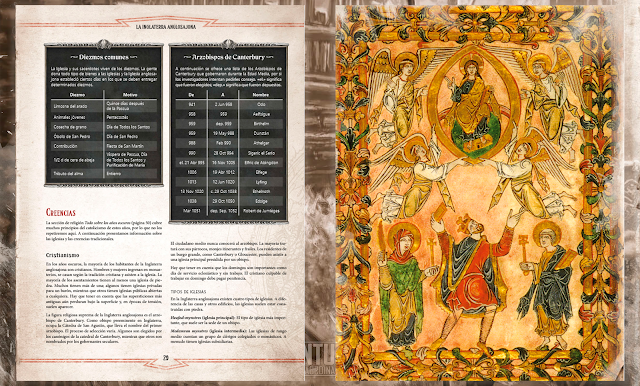 LA INGLATERRA ANGLOSAJONA
Diezmos comunes
La Iglesia y sus sacerdotes viven de los diezmos. La gente
dona todo tipo de bienes a las iglesias y la Iglesia anglosa-
jona estableció ciertos días en los que se deben entregar
determinados diezmos.
Diezmo Motivo
Limosna del arado Quince días después
de la Pascua
Animales jóvenes Pentecostés
Cosecha de grano Día de Todos los Santos
Óbolo de San Pedro Día de San Pedro
Contribución Fiesta de San Martín
1/2 d de cera de abeja Víspera de Pascua, Día
de Todos los Santos y
Purificación de María
Tributo del alma Entierro
Arzobispos de Canterbury
A continuación se ofrece una lista de los Arzobispos de
Canterbury que gobernaron durante la Edad Media, por si
los investigadores intentan pedirles consejo. «el.» significa
que fueron elegidos; «dep.» significa que fueron depuestos.
De A Nombre
941 2 Jun 958 Oda
958 959 Aelfsige
959 dep. 959 Birthelm
959 19 May 988 Dunstán
988 Feb 990 Athelgar
990 28 Oct 994 Sigeric el Serio
el. 21 Abr 995 16 Nov 1005 Elfric de Abingdon
1006 19 Abr 1012 Elfege
1013 12 Jun 1020 Lyfing
13 Nov 1020 c. 29 Oct 1038 Ethelnoth
1038 29 Oct 1050 Edsige
Mar 1051 dep. Sep. 1052 Robert de Jumièges
CREENCIAS
La sección de religión Todo sobre los años oscuros (página 50) cubre
muchos principios del catolicismo de estos años, por lo que no los
repetiremos aquí. A continuación presentamos información sobre
las iglesias y las creencias tradicionales.
Cristianismo
En los años oscuros, la mayoría de los habitantes de la Inglaterra
anglosajona son cristianos. Hombres y mujeres ingresan en monas-
terios, se casan según la tradición cristiana y asisten a la iglesia. La
mayoría de los asentamientos tienen al menos una iglesia de pie-
dra. Muchos tienen más de una; algunos tienen iglesias privadas
para un barrio, mientras que otros tienen iglesias públicas abiertas
a cualquiera. Hay que tener en cuenta que las supersticiones más
antiguas aún perduran bajo la superficie y, en épocas de tensión,
suelen aparecer.
La figura religiosa suprema de la Inglaterra anglosajona es el arzo-
bispo de Canterbury. Como obispo preeminente en Inglaterra,
ocupa la Cátedra de San Agustín, que lleva el nombre del primer
arzobispo. El proceso de selección varía. Algunos son elegidos por
los canónigos de la catedral de Canterbury, mientras que otros son
nombrados por los gobernantes seculares.
El ciudadano medio nunca conocerá al arzobispo. La mayoría tra-
tará con sus párrocos, monjes itinerantes y frailes. Los residentes de
un burgo grande, como Canterbury o Gloucester, pueden asistir a
una iglesia principal presidida por un obispo.
Hay que tener en cuenta que los domingos son importantes como
día de servicio eclesiástico y sin trabajo. El cristiano culpable de
trabajar en domingo debe pagar penitencia.
TIPOS DE IGLESIAS
En la Inglaterra anglosajona existen cuatro tipos de iglesias. A dife-
rencia de las casas y otros edificios, las iglesias suelen estar cons-
truidas con piedra.
Heafod mynstres (iglesia principal): El tipo de iglesia más impor-
tante, que suele ser la sede de un obispo.
Medemran mynstres (iglesia intermedia): Las iglesias de rango
medio cuentan un grupo de clérigos colegiados o monásticos. A
menudo tienen iglesias subsidiarias.
29